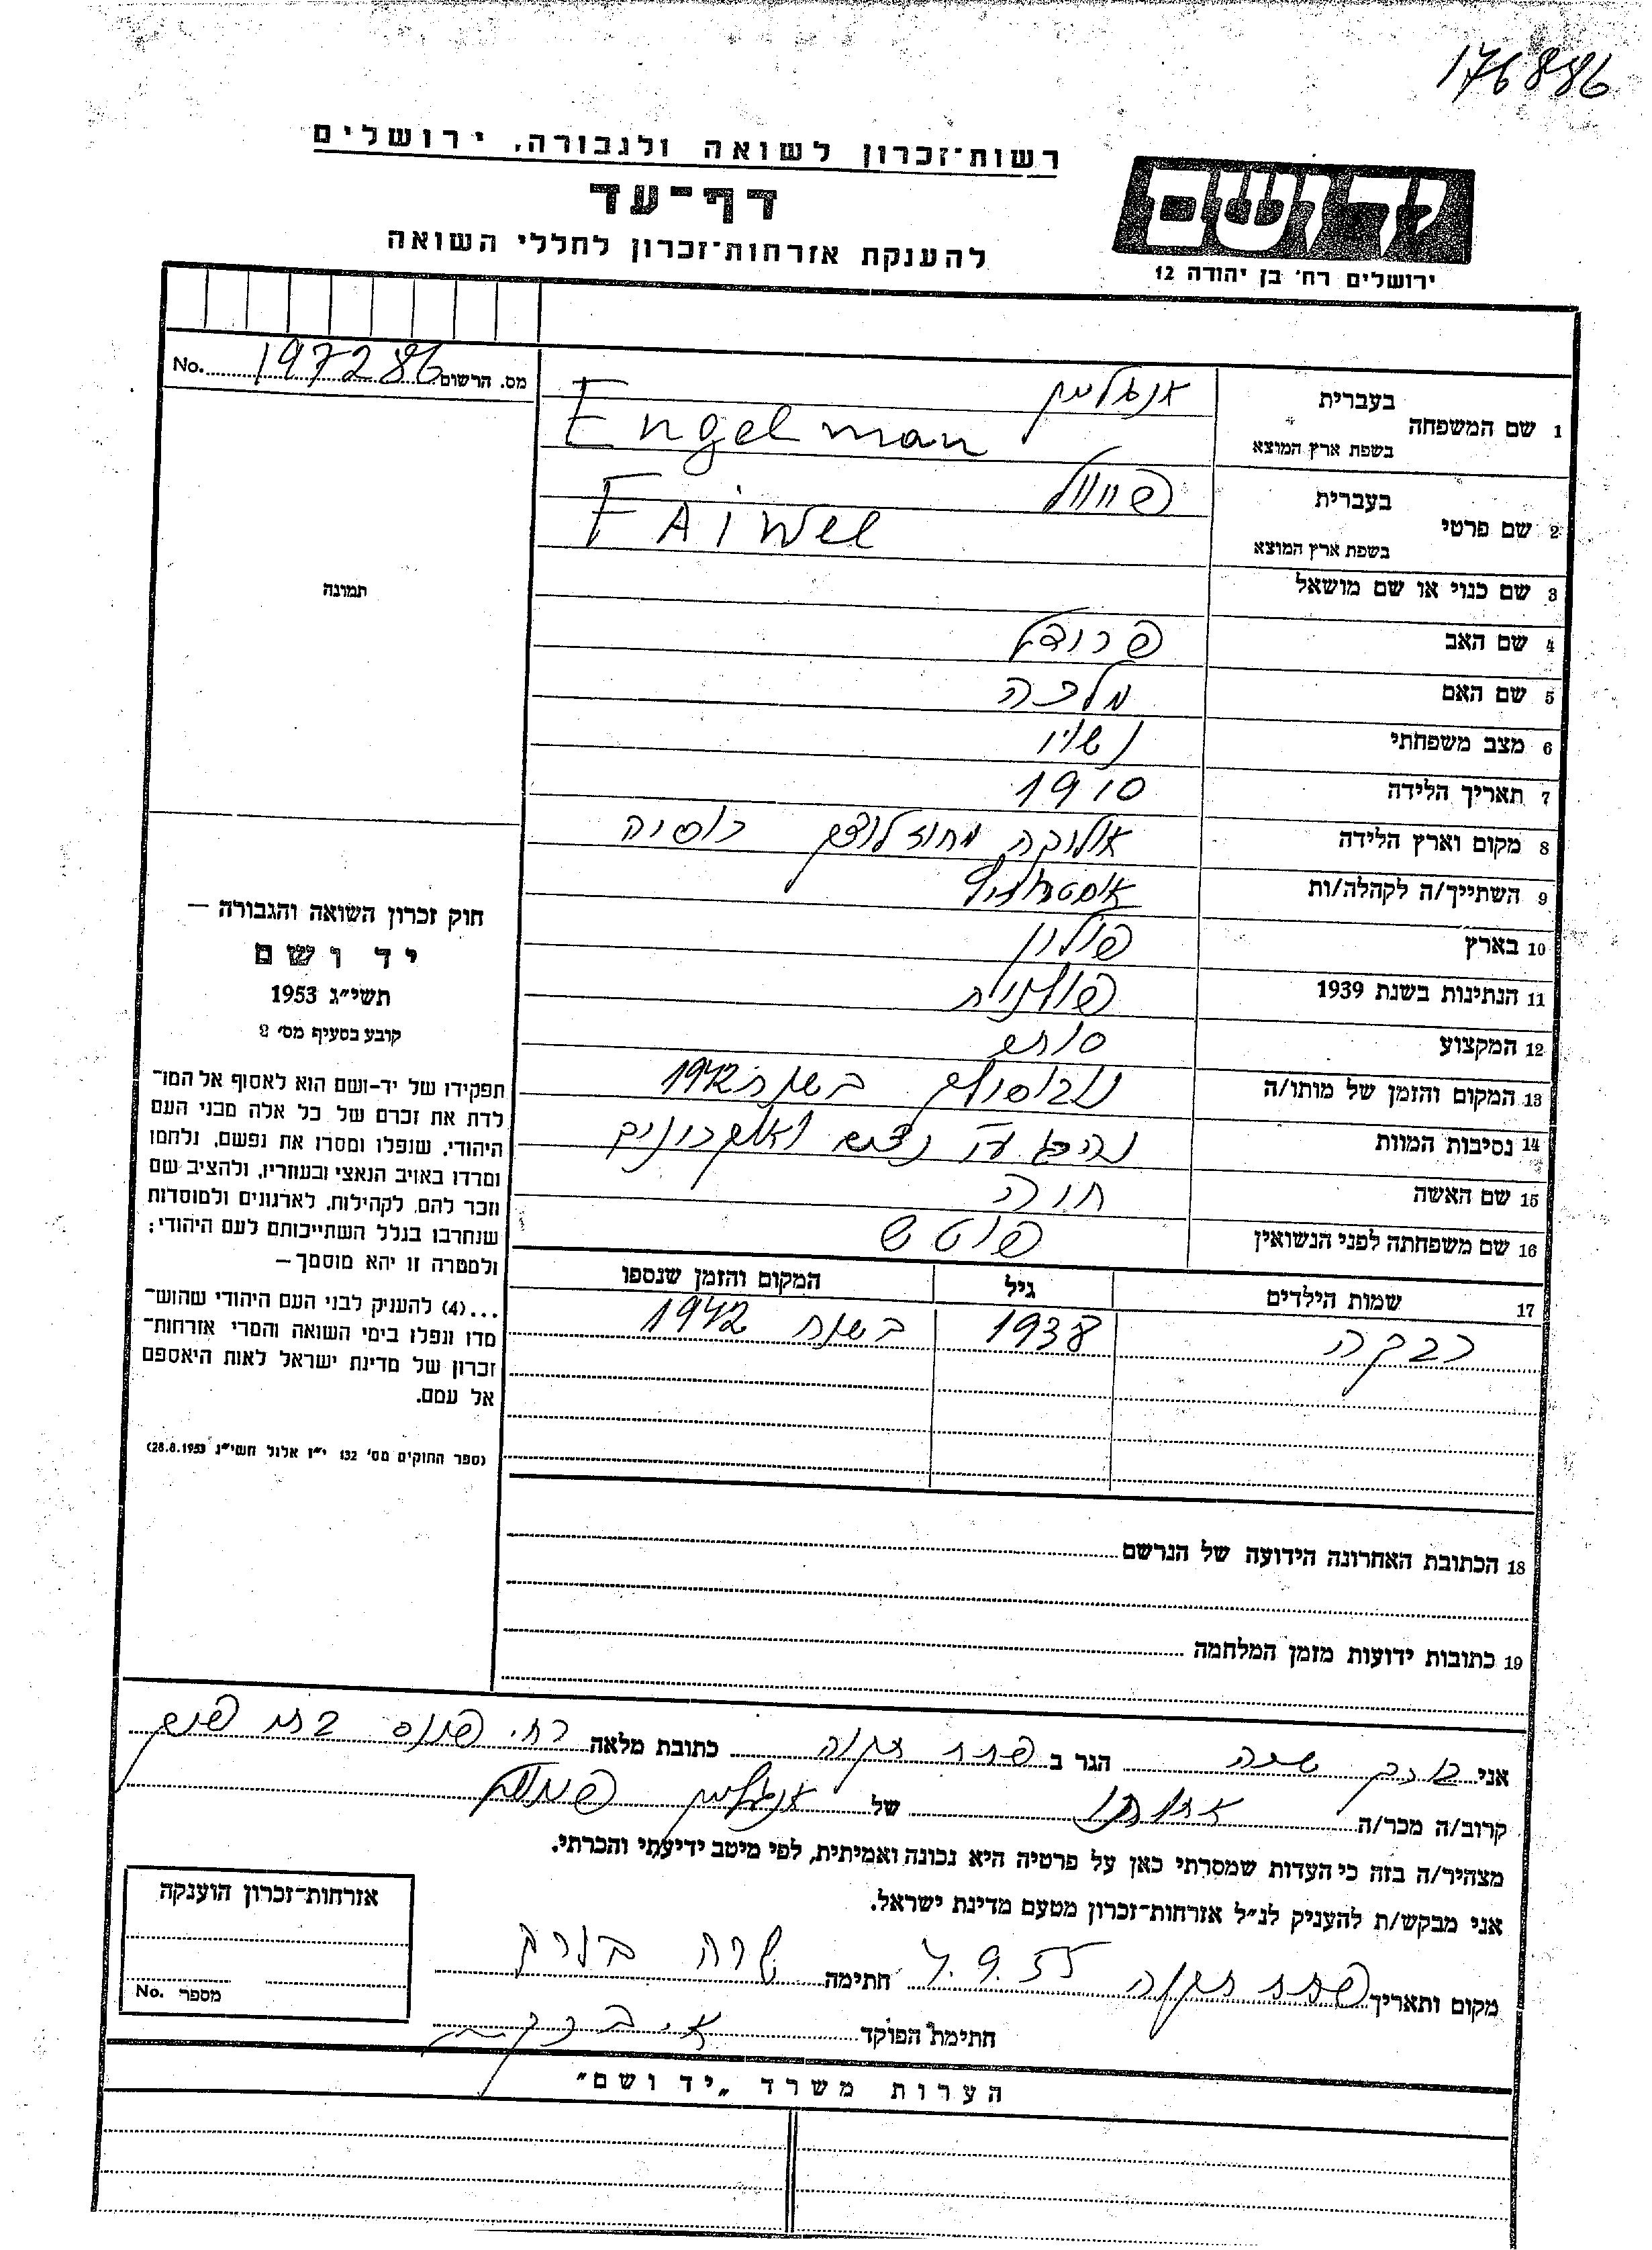 176886
רשות־זכרון לשואה ולגבורה, ירושלים
דף־עד
להענקת אזרחות־זכרון לחללי השואה
יד ושם
ירושלים רח' בן יהודה 12
מס. הרשום 197286 No.
תמונה
חוק זכרון השואה והגבורה —
יד ושם
תשי״ג 1953
קובע בסעיף מס׳ 2
תפקידו של יד-ושם הוא לאסוף אל המו־
לדת את זכרם של כל אלה מבני העם
היהודי, שנפלו ומסרו את נפשם, נלחמו
ומרדו באויב הנאצי ובעוזריו, ולהציב שם
וזכר להם, לקהילות, לארגונים ולמוסדות
שנחרבו בגלל השתייכותם לעם היהודי;
ולמטרה זו יהא מוסמך —
...(4) להעניק לבני העם היהודי שהוש־
מדו ונפלו בימי השואה והמרי אזרחות־
זכרון של מדינת ישראל לאות היאספם
אל עמם.
(ספר החוקים מס׳ 132 י״ז אלול תשי״ג 28.8.1953)
1 שם המשפחה בעברית אנגלמן
בשפת ארץ המוצא Engelman
2 שם פרטי בעברית פייוול
בשפת ארץ המוצא FAiwel
3 שם כנוי או שם מושאל
4 שם האב
5 שם האם מלכה
6 מצב משפחתי נשוי
7 תאריך הלידה 1910
8 מקום וארץ הלידה מחוז לוצק רוסיה
9 השתייך/ה לקהלה/ות
10 בארץ פולין
11 הנתינות בשנת 1939 פולנית
12 המקצוע סוחר
13 המקום והזמן של מותו/ה בשנת 1942
14 נסיבות המוות נהרג ע״י
15 שם האשה חוה
16 שם משפחתה לפני הנשואין
17 שמות הילדים גיל המקום והזמן שנספו
רבקה 1938 בשנת 1942
18 הכתובת האחרונה הידועה של הנרשם
19 כתובות ידועות מזמן המלחמה
אני בורק שרה הגר ב פתח תקוה כתובת מלאה רח׳ פינס
קרוב/ה מכר/ה אחותו של אנגלמן פייוול
מצהיר/ה בזה כי העדות שמסרתי כאן על פרטיה היא נכונה ואמיתית, לפי מיטב ידיעתי והכרתי.
אני מבקש/ת להעניק לנ״ל אזרחות־זכרון מטעם מדינת ישראל.
מקום ותאריך פתח תקוה 7.9.55 חתימה שרה בורק
חתימת הפוקד
אזרחות־זכרון הוענקה
מספר No.
הערות משרד „יד ושם״